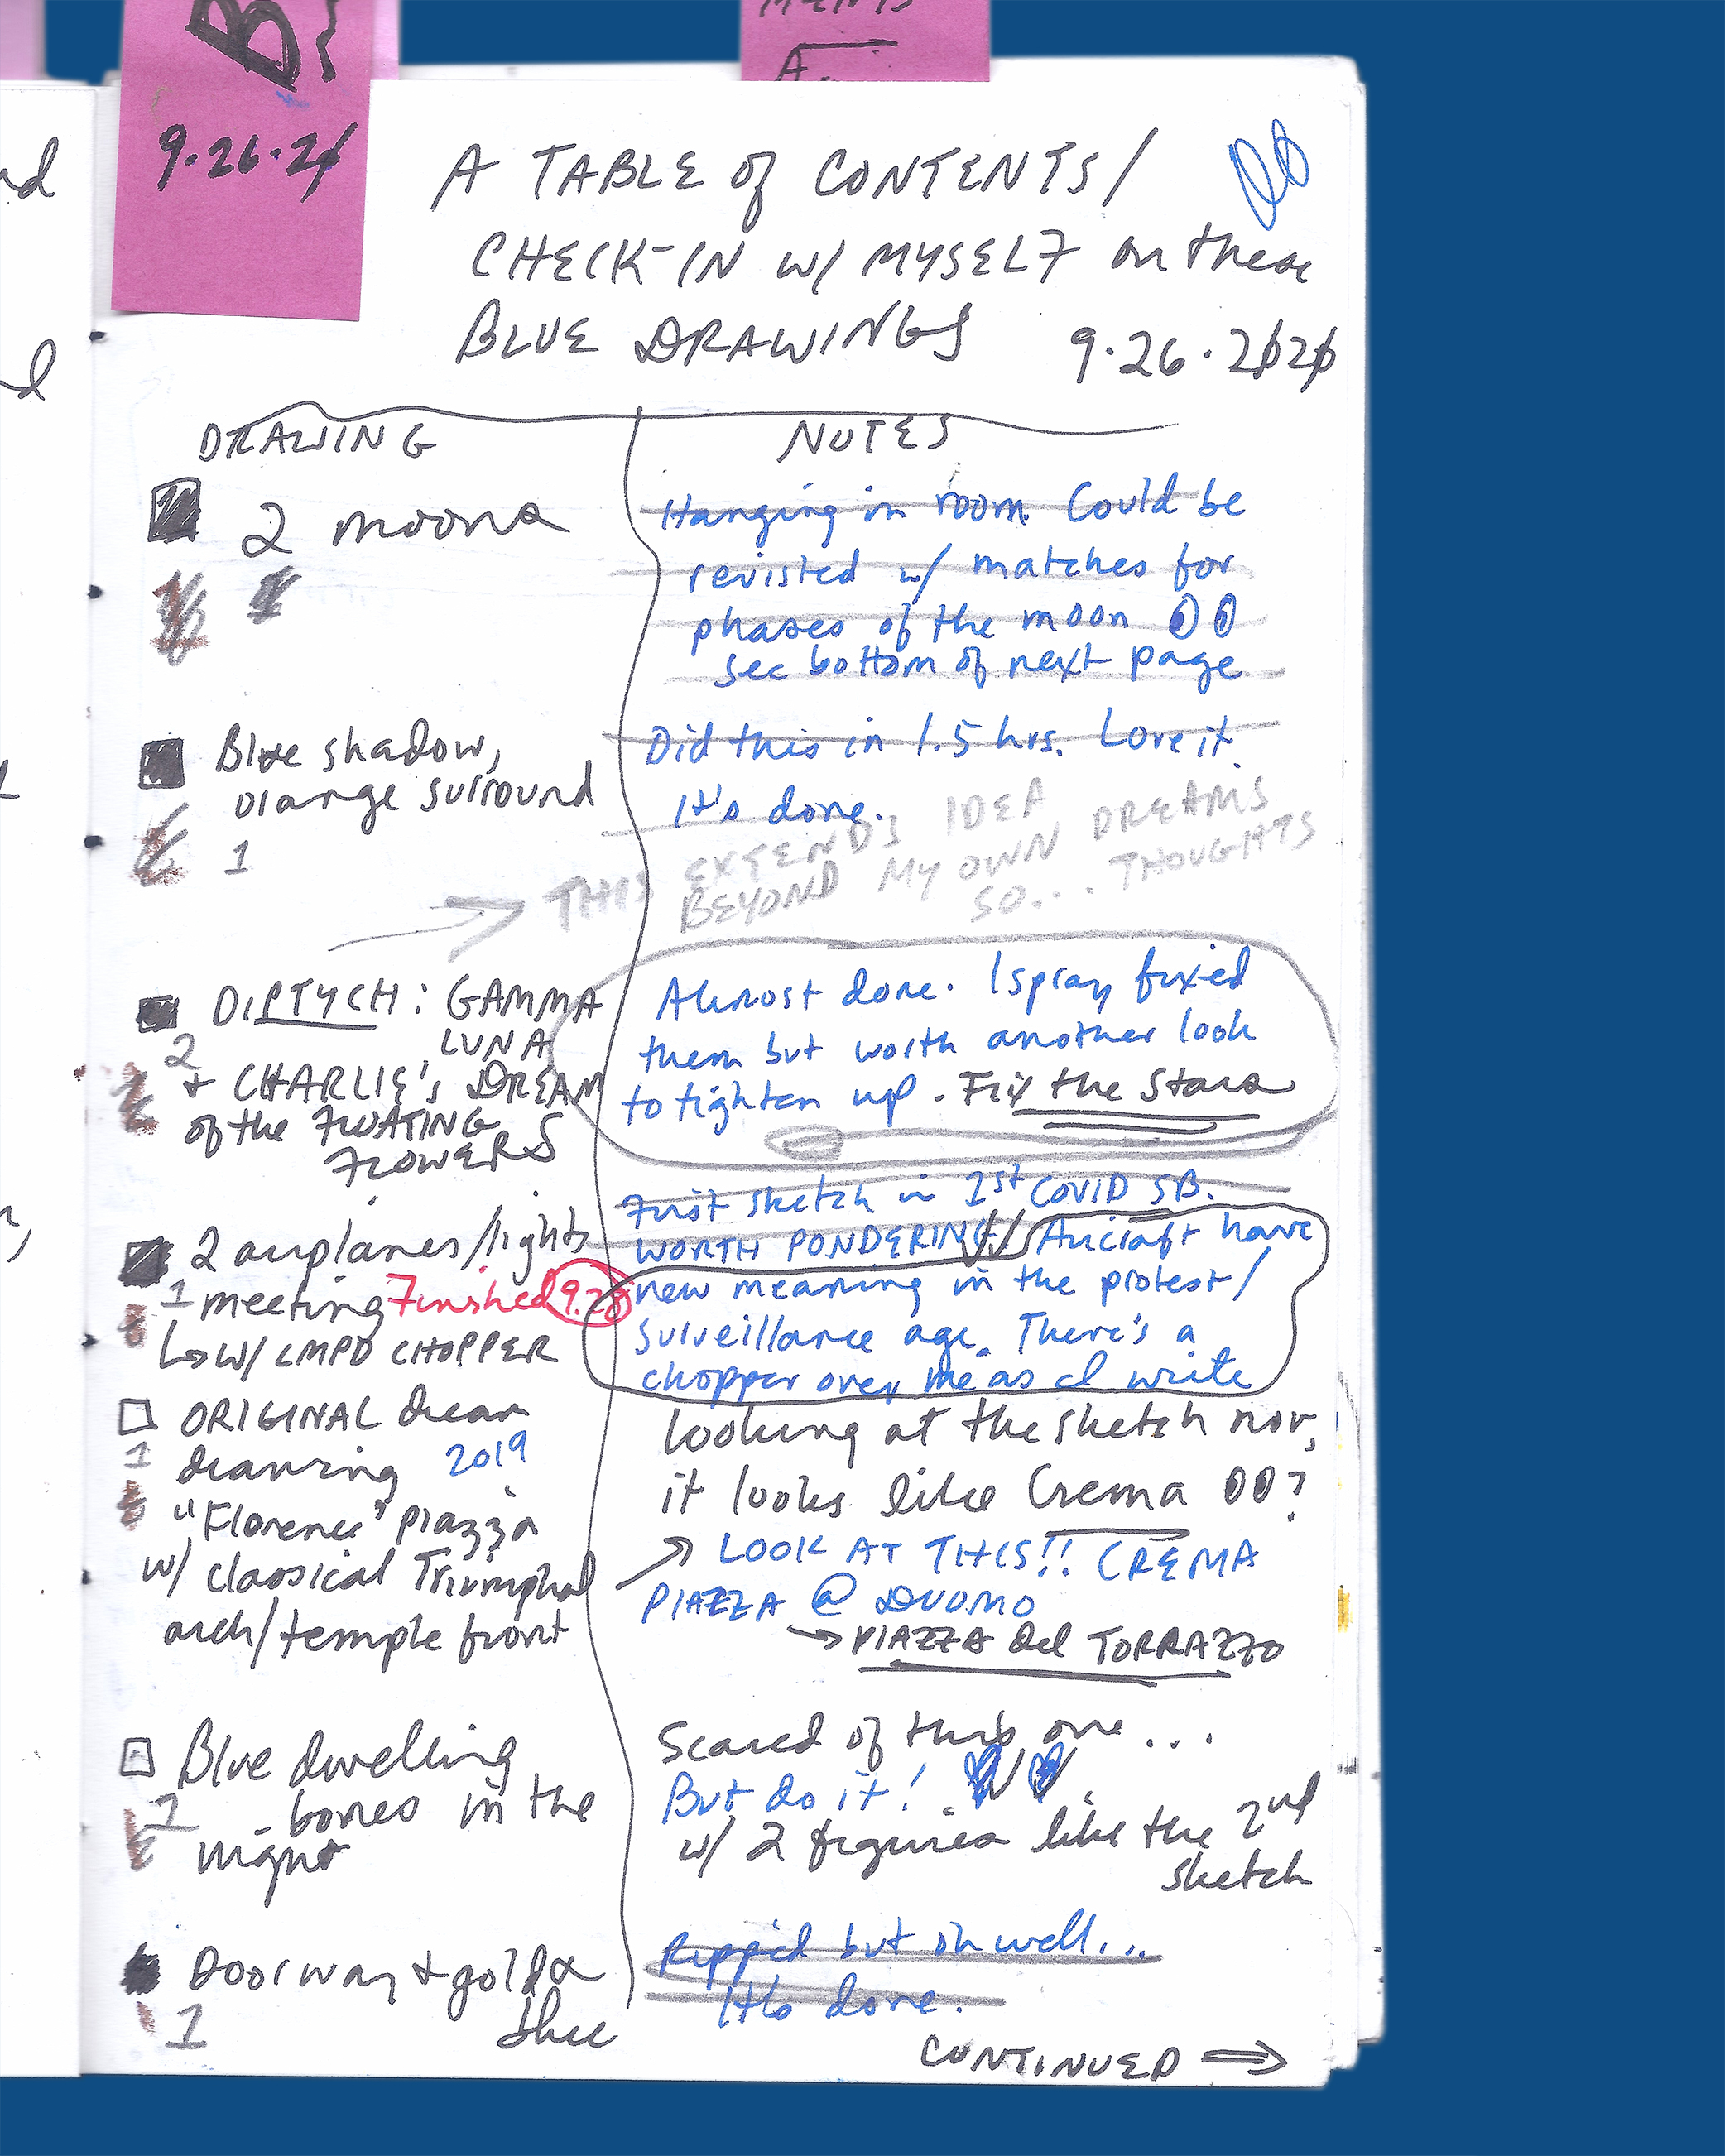 B
9.26.20
A TABLE of CONTENTS/
CHECK-IN W/ MYSELF on these
BLUE DRAWINGS 9.26.2020
DRAWING
NOTES
2 moons
Hanging in room. Could be
revisted w/ matches for
phases of the moon
see bottom of next page
Blue shadow,
orange surround
1
Did this in 1.5 hrs. Love it.
It's done.
THIS EXTENDS IDEA
BEYOND MY OWN DREAMS
SO... THOUGHTS
DIPTYCH: GAMMA
LUNA
2
+ CHARLIE'S DREAM
of the FLOATING
FLOWERS
Almost done. I spray fixed
them but worth another look
to tighten up. Fix the Stars
2 airplanes/lights
1 meeting Finished 9.28
↳ W/ LMPD CHOPPER
First sketch in 1st COVID SB.
WORTH PONDERING// Aircraft have
new meaning in the protest/
surveillance age. There's a
chopper over me as I write
ORIGINAL dream
1 drawing 2019
"Florence" piazza
w/ classical Triumphal
arch/temple front
looking at the sketch now,
it looks like Crema ?
→ LOOK AT THIS!! CREMA
PIAZZA @ DUOMO
→ PIAZZA del TORRAZZO
Blue dwelling
1 bones in the
night
Scared of this one...
But do it!
w/ 2 figures like the 2nd
sketch
Doorway + gold
1
Ripped but oh well...
It's done.
CONTINUED ⇒